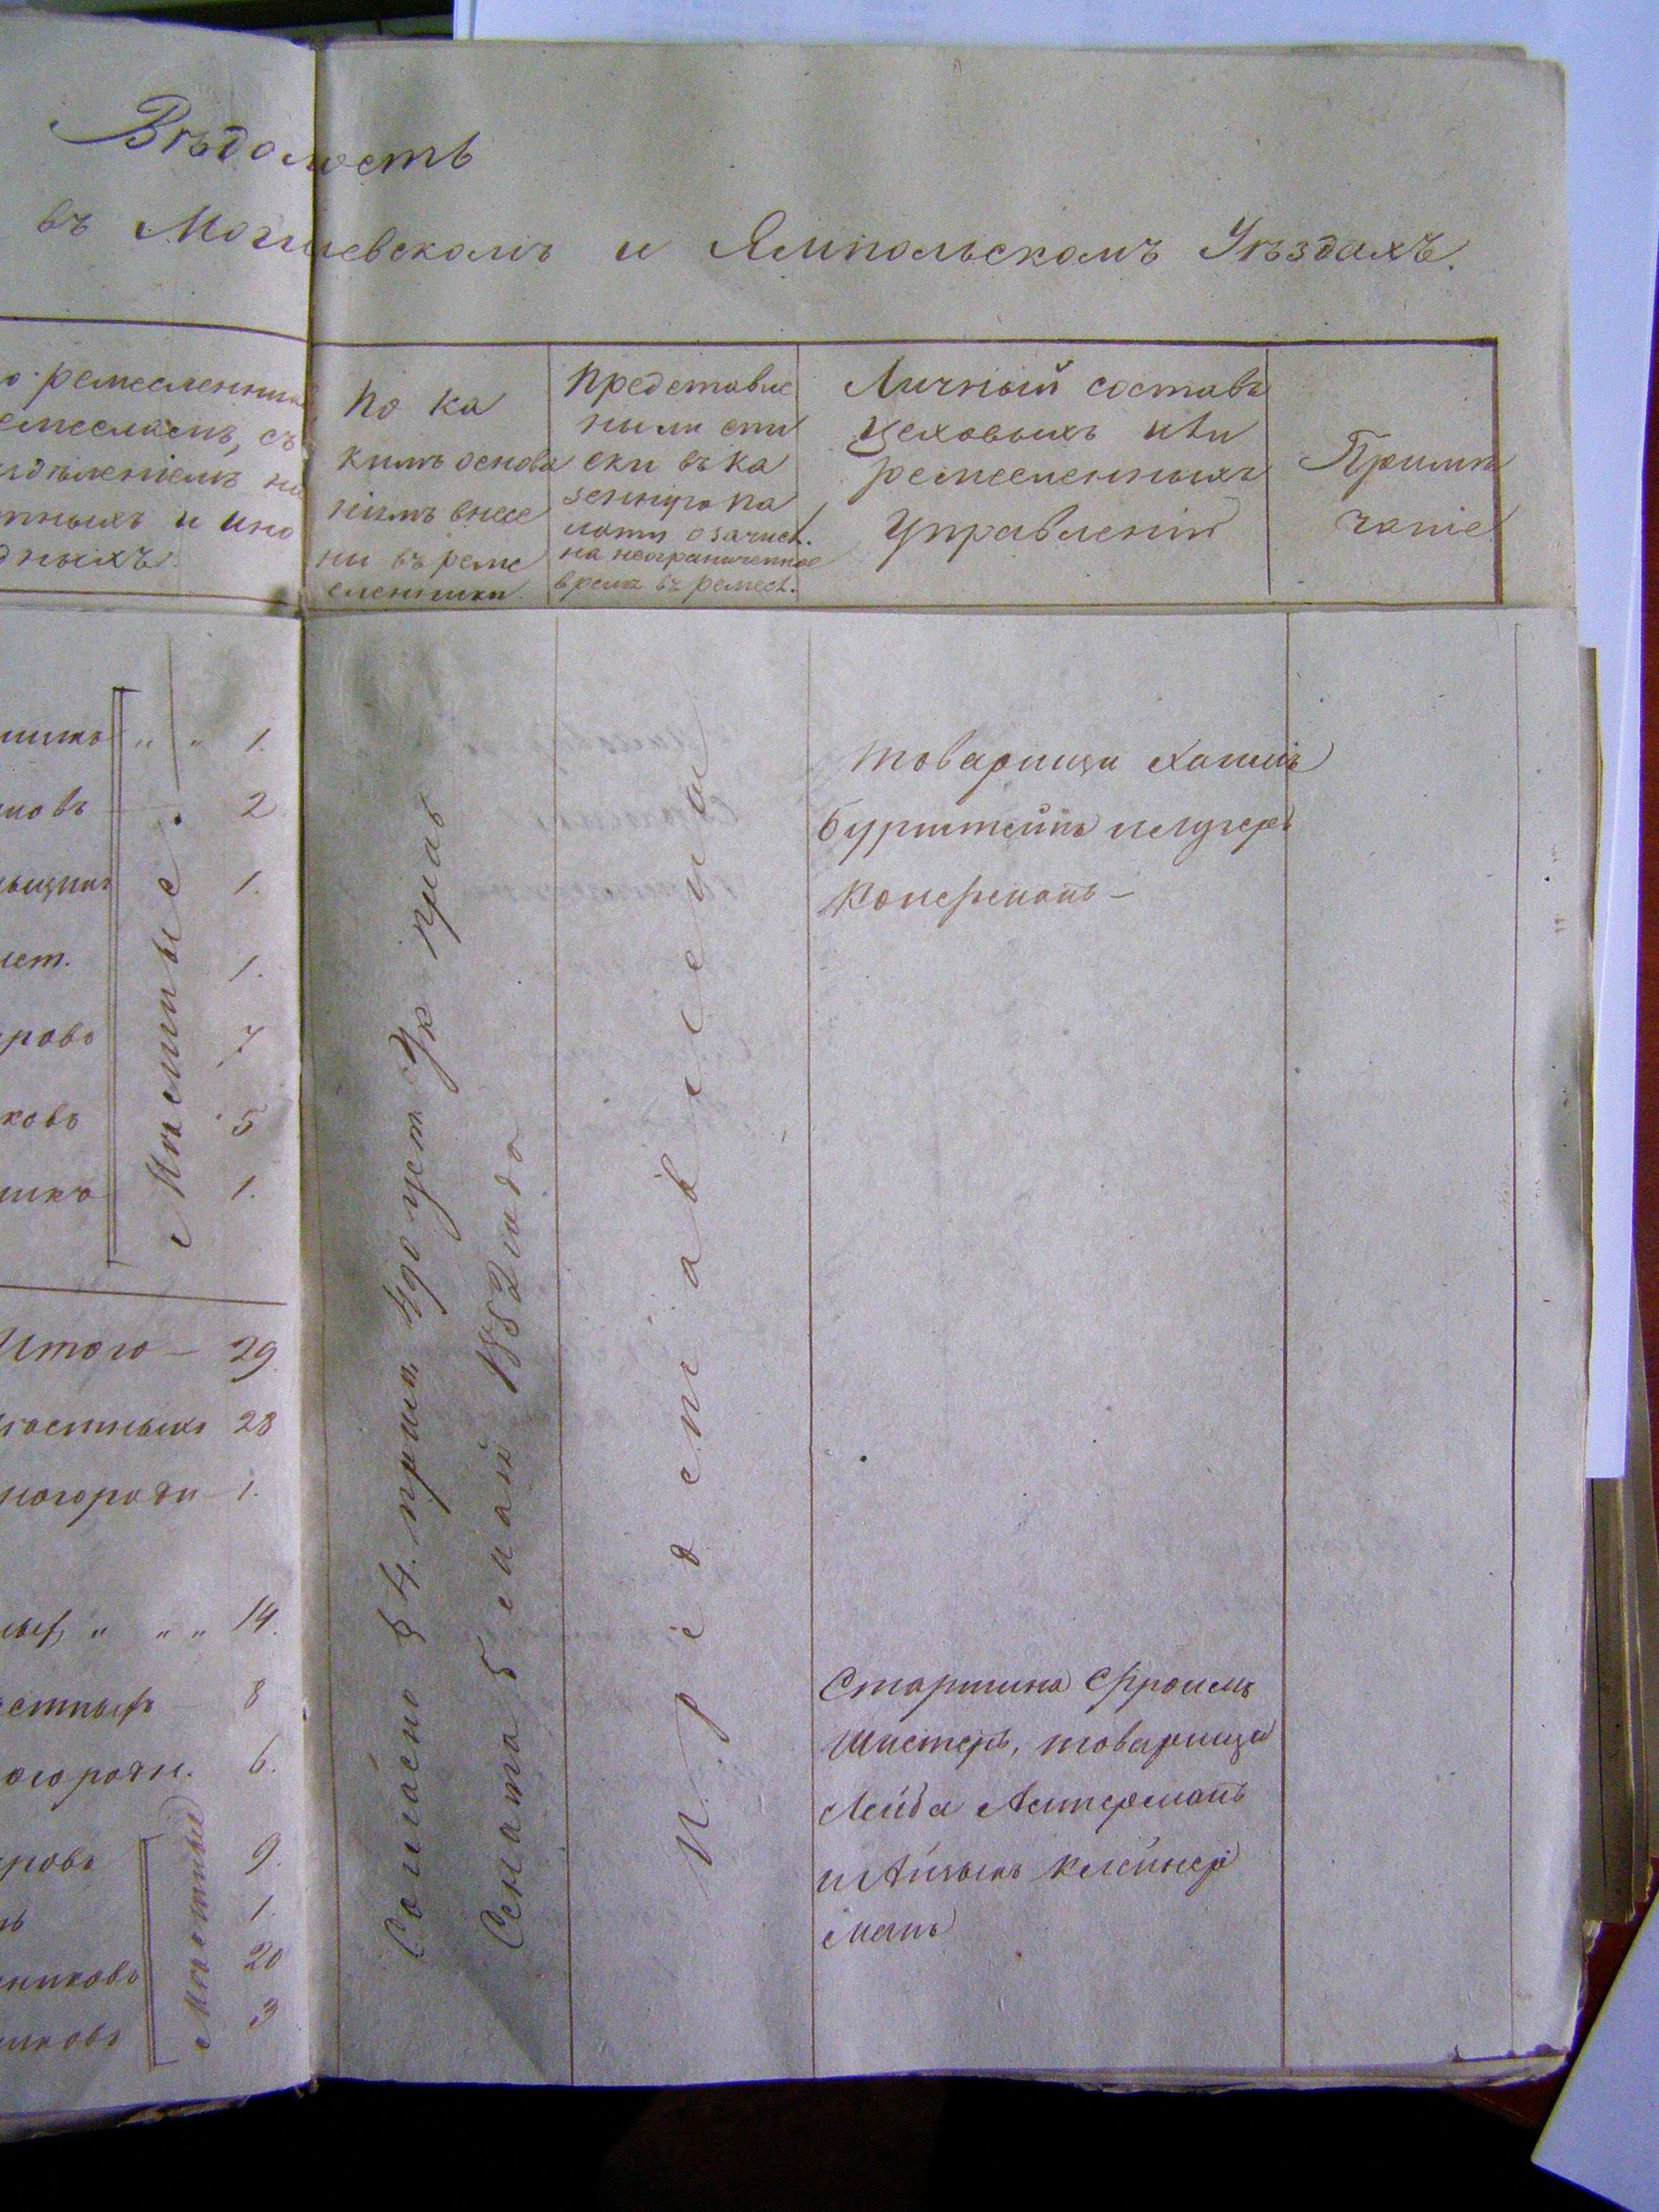 Вѣдомость
въ Могилевскомъ и Ямпольскомъ Уѣздахъ.
о ремесленника
емесламъ, съ
здѣленіемъ на
тныхъ и ино
дныхъ.
По ка
кимъ основа
ніямъ внесе
ны въ реме
сленники.
Представле
ны ли спи
ски въ ка
зенную па
лату о зачисл.
на неограниченное
время въ ремесл.
Личный составъ
Цеховыхъ или
ремесленныхъ
Управленій
Примѣ
чаніе
1.
новъ 2
1.
1.
ровъ 7
ковъ 5
1.
Мѣстные
Итого — 29.
мѣстныхъ 28
ногородн — 1.
" " " 14.
ѣстныхъ 8
огородн. 6.
ровъ 9.
1.
никовъ 20
иковъ 3
Мѣстные
Согласно § 4. прим. 4 уст. Ук. Прав
Сената 5 Мая 1882 года
Представлены
Товарищи Хаимъ
Бурштейнъ и Лузеръ
Коперманъ —
Старшина Фроимъ
Шистеръ, товарищи
Лейба Актерманъ
и Айзыкъ Клейнер
манъ